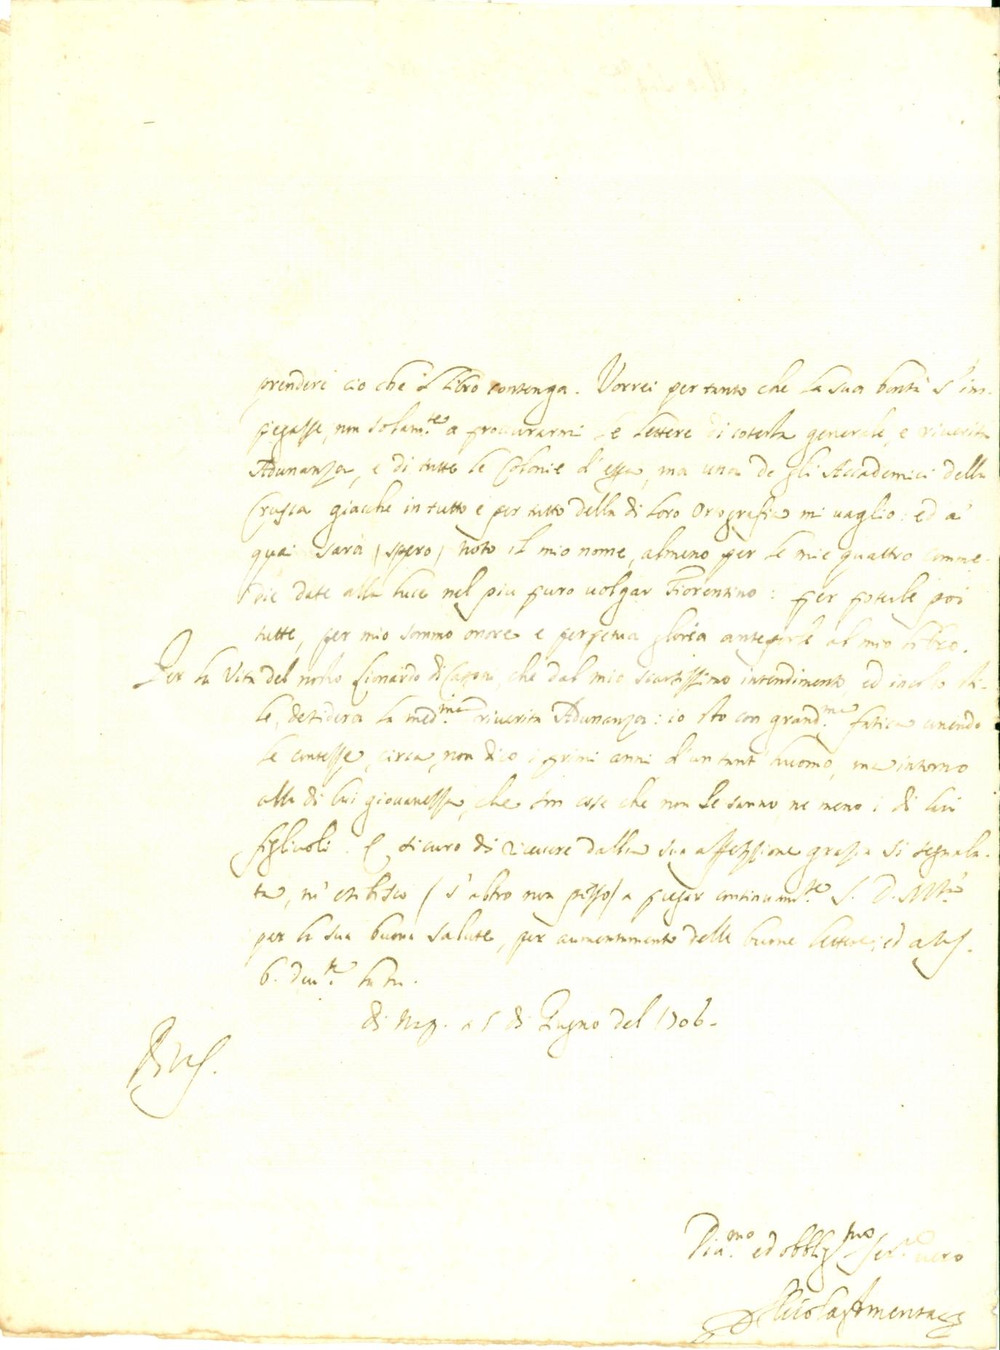 prendere ciò che il libro contenga. Vorrei per tanto che la sua bontà s'im-
piegasse, non solam.te a procurarmi le lettere di cotesta generale, e riverita
Adunanza, e di tutte le Colonie d'essa, ma una de gli Accademici della
Crusca giacche in tutto e per tutto della di loro Ortografia mi vaglio: ed a'
quai sarà (spero) noto il mio nome, almeno per le mie quattro comme-
die date alla luce nel più puro volgar Fiorentino: per poterle poi
tutte, per mio sommo onore e perpetua gloria anteporle al mio libro.
Per la Vita del nostro Lionardo di Capoa, che dal mio scarsissimo intendimento ed incolto sti-
le, desidera la med.ma riverita Adunanza: io sto con grand.ma fatica unendo
le contesse, circa, non dico i primi anni d'un tant'huomo, ma intorno
alla di lui giovanezza, che son cose che non le sanno ne meno i di lui
figliuoli. E sicuro di ricevere dalla sua affezzione grazia sì segnala-
ta, m' esibisco (s'altro non posso) a pregar continuam.te S. D. M.tà
per la sua buona salute, per aumentamento delle buone lettere; ed a V.S.
b. div.te la m.
di Nap. a 5 di Giugno del 1706.
Di V.S.
Div.mo ed obblig.mo ser.e vero
Nicola Amenta